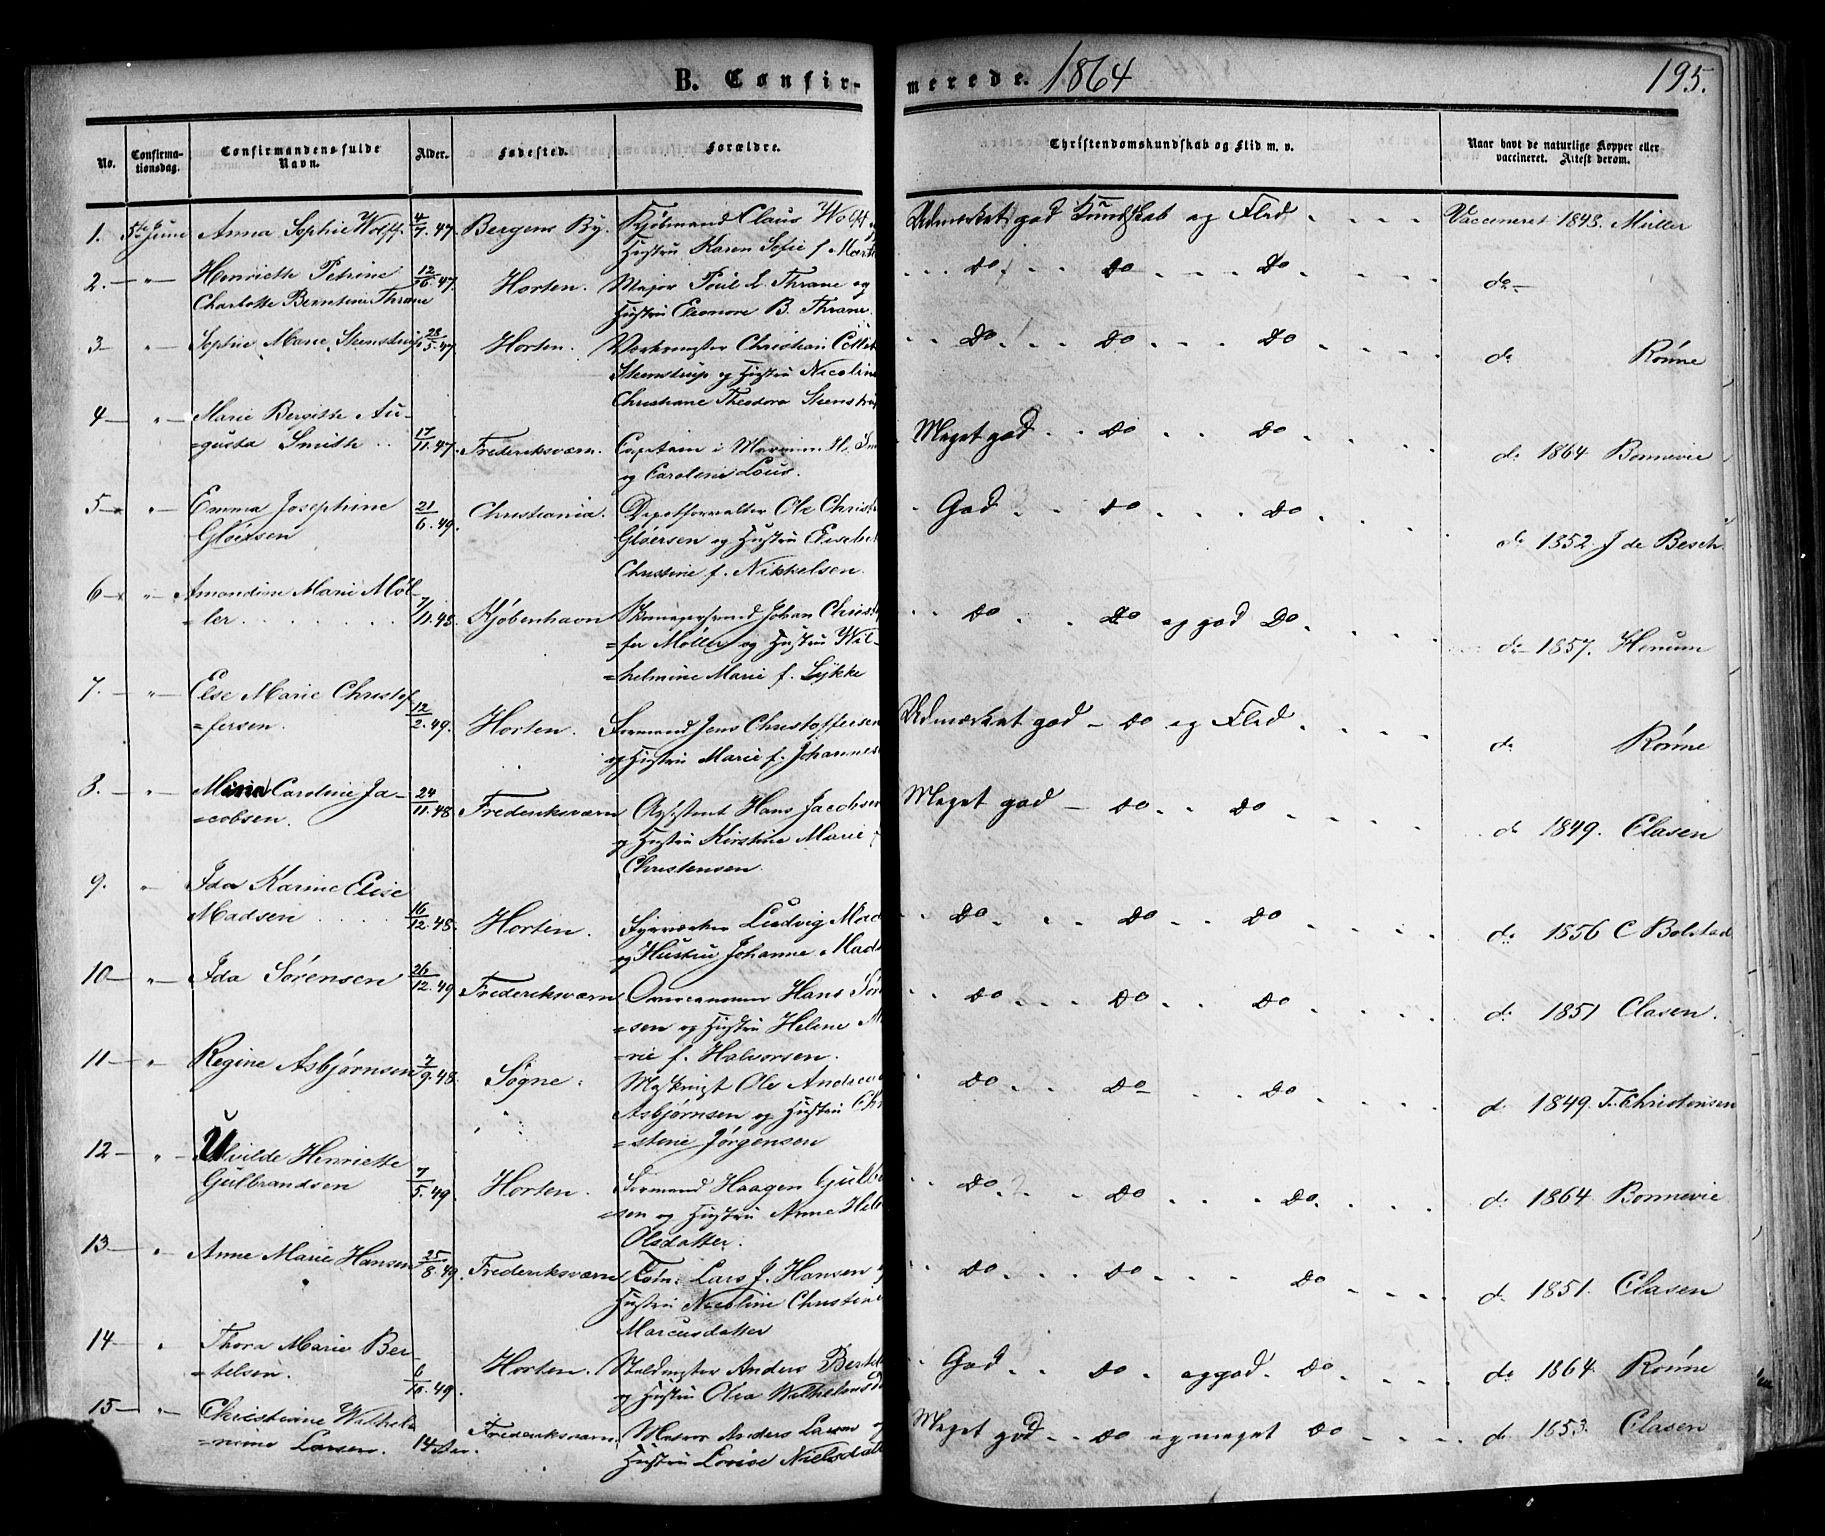 B. Confir-
merede. 1864
195.
No.
Confirma-
tionsdag.
Confirmandens fulde
Navn.
Alder.
Fødested.
Forældre.
Christendomskundskab og Flid m. v.
Naar havt de naturlige Kopper eller
vaccineret. Attest derom.
1. 5te Juni Anna Sophie Wolff 4/7. 47. Bergens By. Kjøbmand Claus Wolff
Hustru Karen Sofie f.
Udmærket god Kundskab og Flid - - - - Vaccineret 1848. Müller
2. — " — Henriette Petrine 12/10. 47. Horten. Major Poul L. Thrane og
Charlotte Berntine Thrane Hustru Eleonore B. Thrane.
Do Do Do do —
3 — " — Sophie Marie Steenstrup 28/5. 47. Horten. Værkmester Christian Collett
Steenstrup og Hustru Nicoline
Christiane Theodora Steenstrup
Do Do Do do Rønne
4 — " — Marie Bergitte Au-
=gusta Smith 17/11. 47. Frederiksværn. Capitain i Marinen
og Caroline
Meget god Do Do do 1864 Bonnevie
5 — " — Emma Josephine 21/6. 49. Christiania. Depotforvalter Ole Christ
Gløersen Gløersen og Hustru Elisebet
Christine f. Nikkelsen.
God Do Do do 1852. J de Besch
6 — " — Amandine Marie Møl-
=ler 7/11. 48. Kjøbenhavn Johan Christ
=fer Møller og Hustru Wil-
=helmine Marie f. Lykke
Do Do og god Do do 1857. Henum
7. — " — Else Marie Christof
=fersen. 12/2. 49. Horten. Formand Jens Christoffersen
og Hustru Marie f. Johannes
Udmærket god — Do og Flid do Rønne
8. — " — Maria Caroline Ja-
=cobsen. 24/11. 48. Frederiksværn Assistent Hans Jacobsen
og Hustru Kirstine Marie
Christensen
Meget god — Do Do do 1849. Clasen
9. " — Ida Karine Elise
Madsen 16/12. 48. Horten. Fyrværker Ludvig Mad
og Hustru Johanne Mad
Do Do Do do 1856 C Bolstad
10 — " — Ida Sørensen 26/12. 49 Frederiksværn Hans Sør
=sen og Hustru Helene M
=rie f. Halvorsen.
Do Do Do do 1851 Clasen.
11 — " — Regine Asbjørnsen 7/9. 48. Søgne. Ole Andreas
Asbjørnsen og Hustru Ch
=stine Jørgensen
Do Do — Do do 1849. T. Christensen
12 — " — Ulvilde Henriette
Gulbrandsen 7/5. 49 Horten. Formand Haagen Gulb
=sen og Hustru Anne Hel
Olsdatter.
Do Do Do do 1864 Bonnevie
13 — " — Anne Marie Hansen 25/8. 49. Frederiksværn Tøm: Lars J. Hansen
Hustru Nicoline Christine
Marcusdatter
Do Do Do do 1851. Clasen
14 — " Thora Marie Ber-
=telsen. 6/10. 49. Horten. Anders Bertel
og Hustru Olia Wilhelmsd
God Do og god Do do 1864. Rønne
15 — " — Christiane Wilhel
=mine Larsen. 14 Aar. Frederiksværn. Anders Larsen
Hustru Lovise Nielsdatt
Meget god Do og meget Do do 1853. Clasen